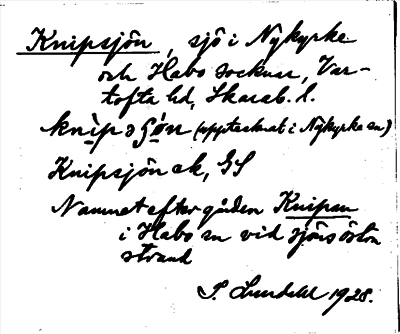 Knipsjön, sjö i Nykyrke
och Habo socknar, Var-
tofta hd, Skarab. l.
knìpɘʃǿn (upptecknat i Nykyrke sn)
Knipsjön ek, GS
Namnet efter gården Knipan
i Habo sn vid sjöns östra
strand
S. Lundahl 1928.